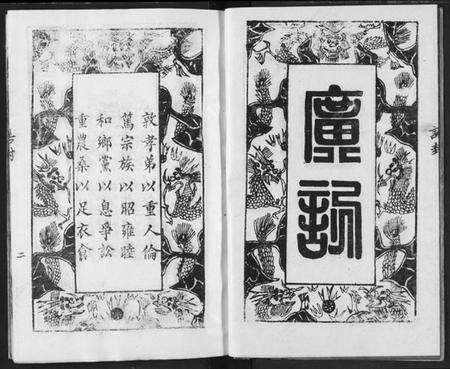 廣訓
敦孝弟以重人倫
篤宗族以昭雍睦
和鄉黨以息爭訟
重農桑以足衣食
二